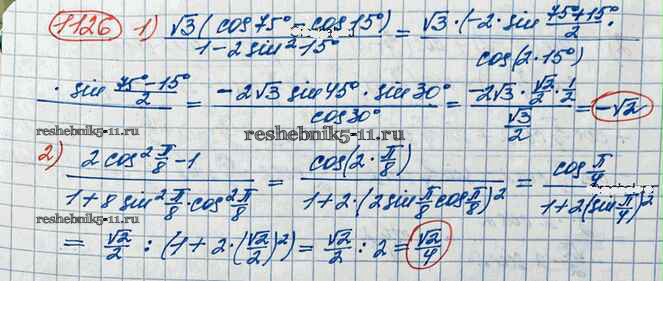 1126 1) √3(cos75° - cos15°) / 1-2sin²15° = √3·(-2·sin (75°+15°)/2 · / cos(2·15°)
· sin (75°-15°)/2 = -2√3 sin45°·sin30° / cos30° = -2√3·√2/2·1/2 / √3/2 = -√2
reshebnik5-11.ru reshebnik5-11.ru
2) 2cos²π/8 -1 / 1+8sin²π/8·cos²π/8 = cos(2·π/8) / 1+2·(2sinπ/8 cosπ/8)² = cosπ/4 / 1+2(sinπ/4)²
reshebnik5-11.ru
= √2/2 : (1+2·(√2/2)²) = √2/2 : 2 = √2/4